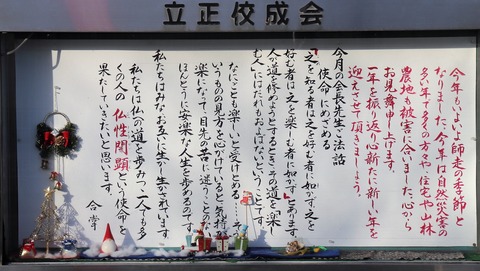 立正佼成会
今年もいよいよ師走の季節と
なりました。今年は自然災害の
多い年で多くの方々や、住宅や山林
農地も被害に会いました。心から
お見舞申し上げます。
一年を振り返り心新たに新しい年を
迎えさせて頂きましょう。
今月の会長先生ご法話
使命にめざめる
「之を知る者は之を好む者に如かず。之を
好む者は之を楽しむ者に如かず」とあります。
人が道を修めようとするとき、その道を「楽し
む人」にはだれもおよばないということです。
なにごとも楽しいと受けとめる……そう
いうものの見方を心がけていると気持が
楽になって、目先の苦に迷うことのない
ほんとうに安楽な人生を歩めるのです。
私たちはみなお互いに生かし生かされています。
私たちは仏の道を歩みつつ一人でも多
くの人の仏性開顕という使命を
果たしていきたいと思います。
合掌